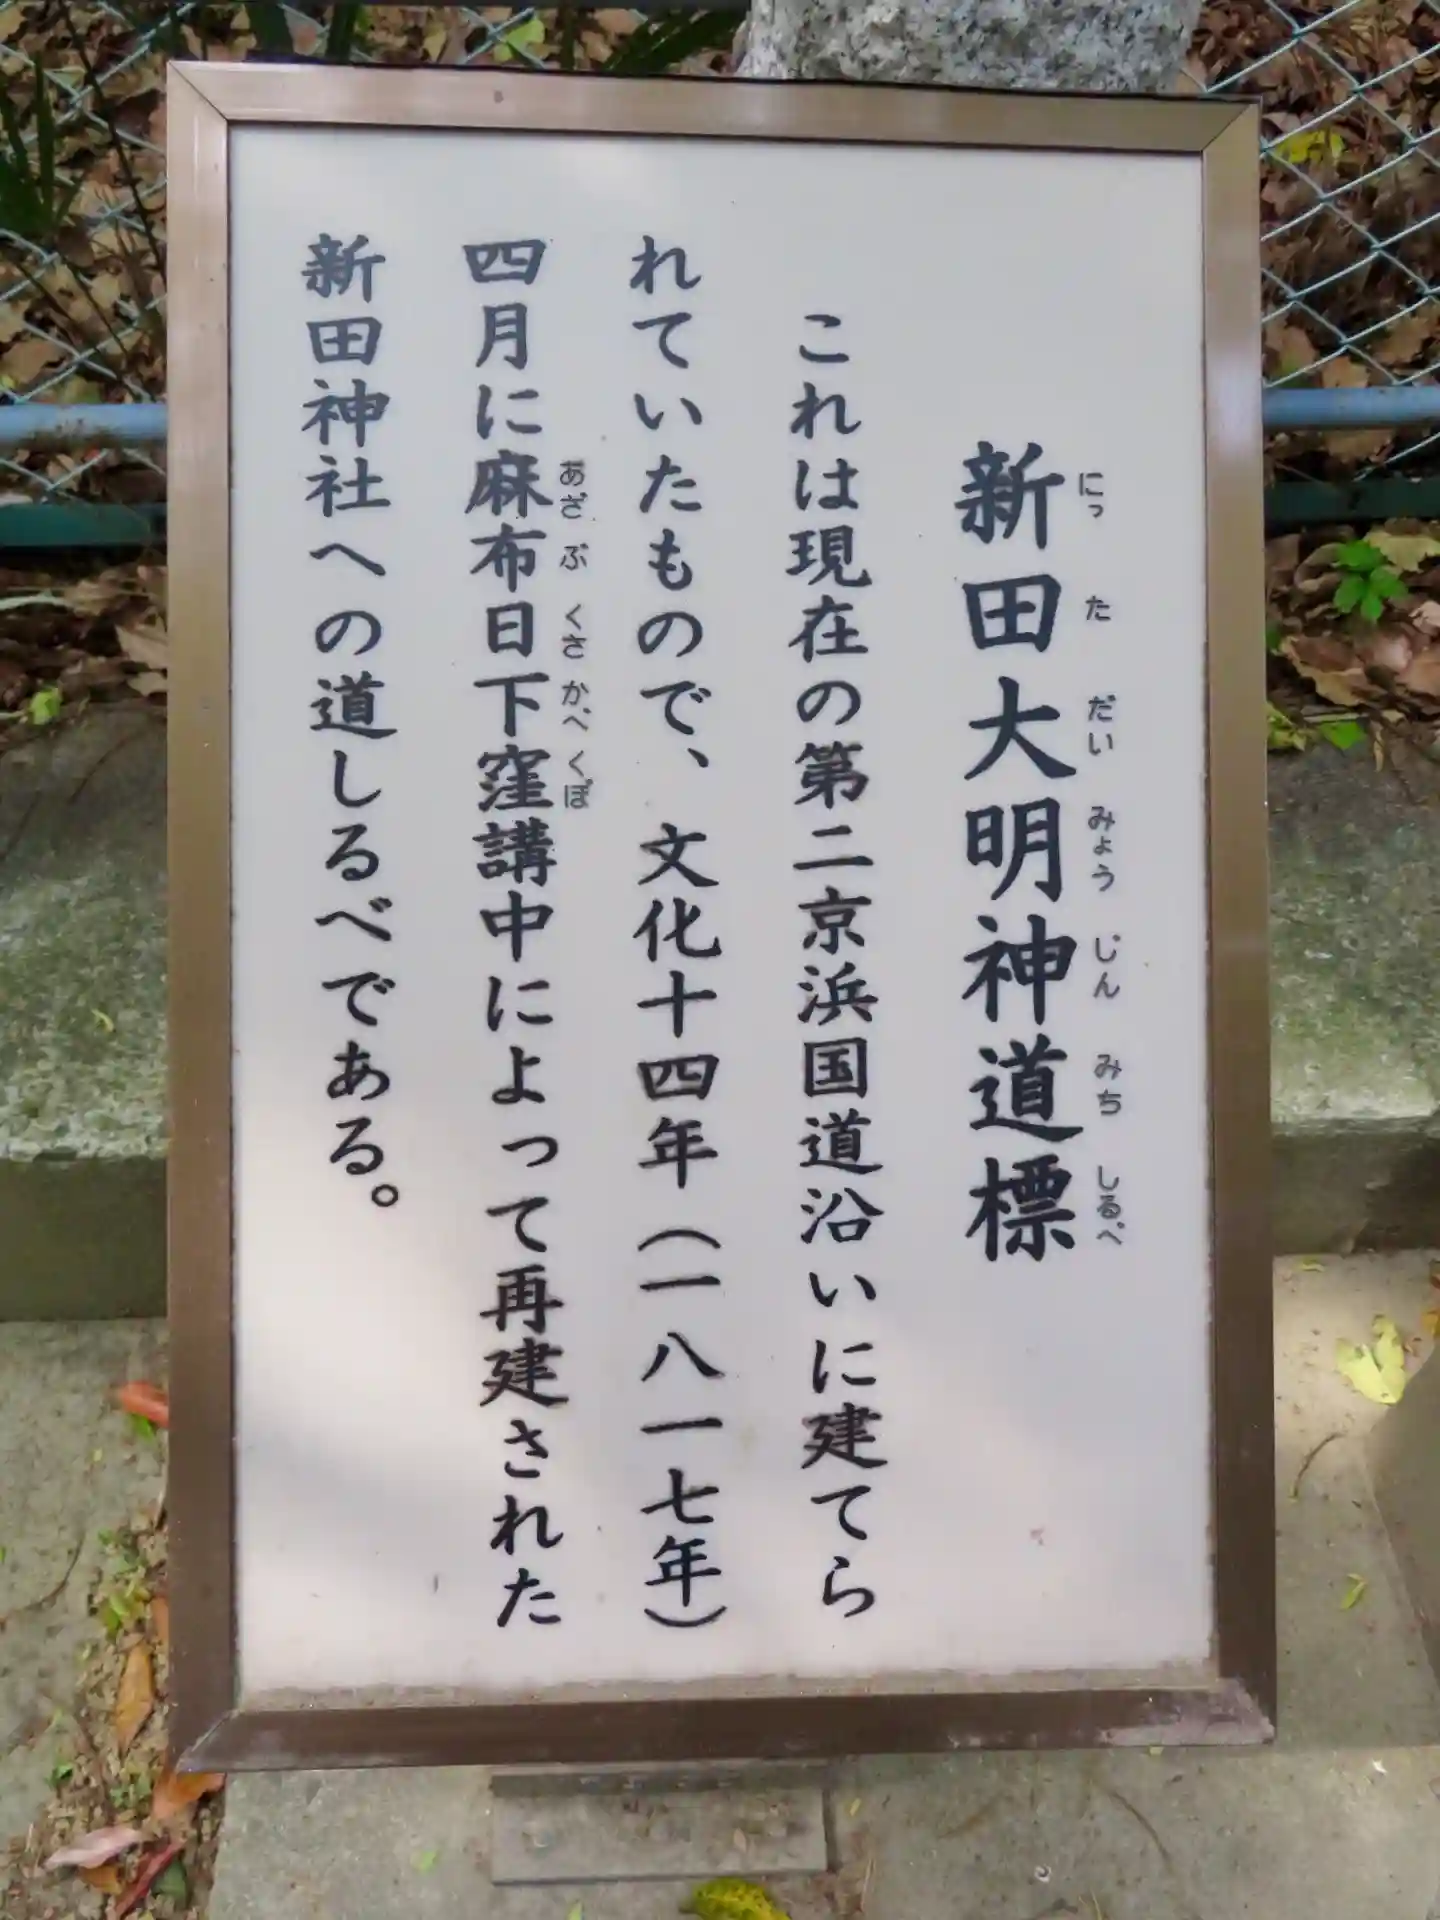 新田大明神道標
にっ た だい みょう じん みち しるべ
これは現在の第二京浜国道沿いに建てら
れていたもので、文化十四年（一八一七年）
四月に麻布日下窪講中によって再建された
あざ ぶ くさ かべ くぼ
新田神社への道しるべである。